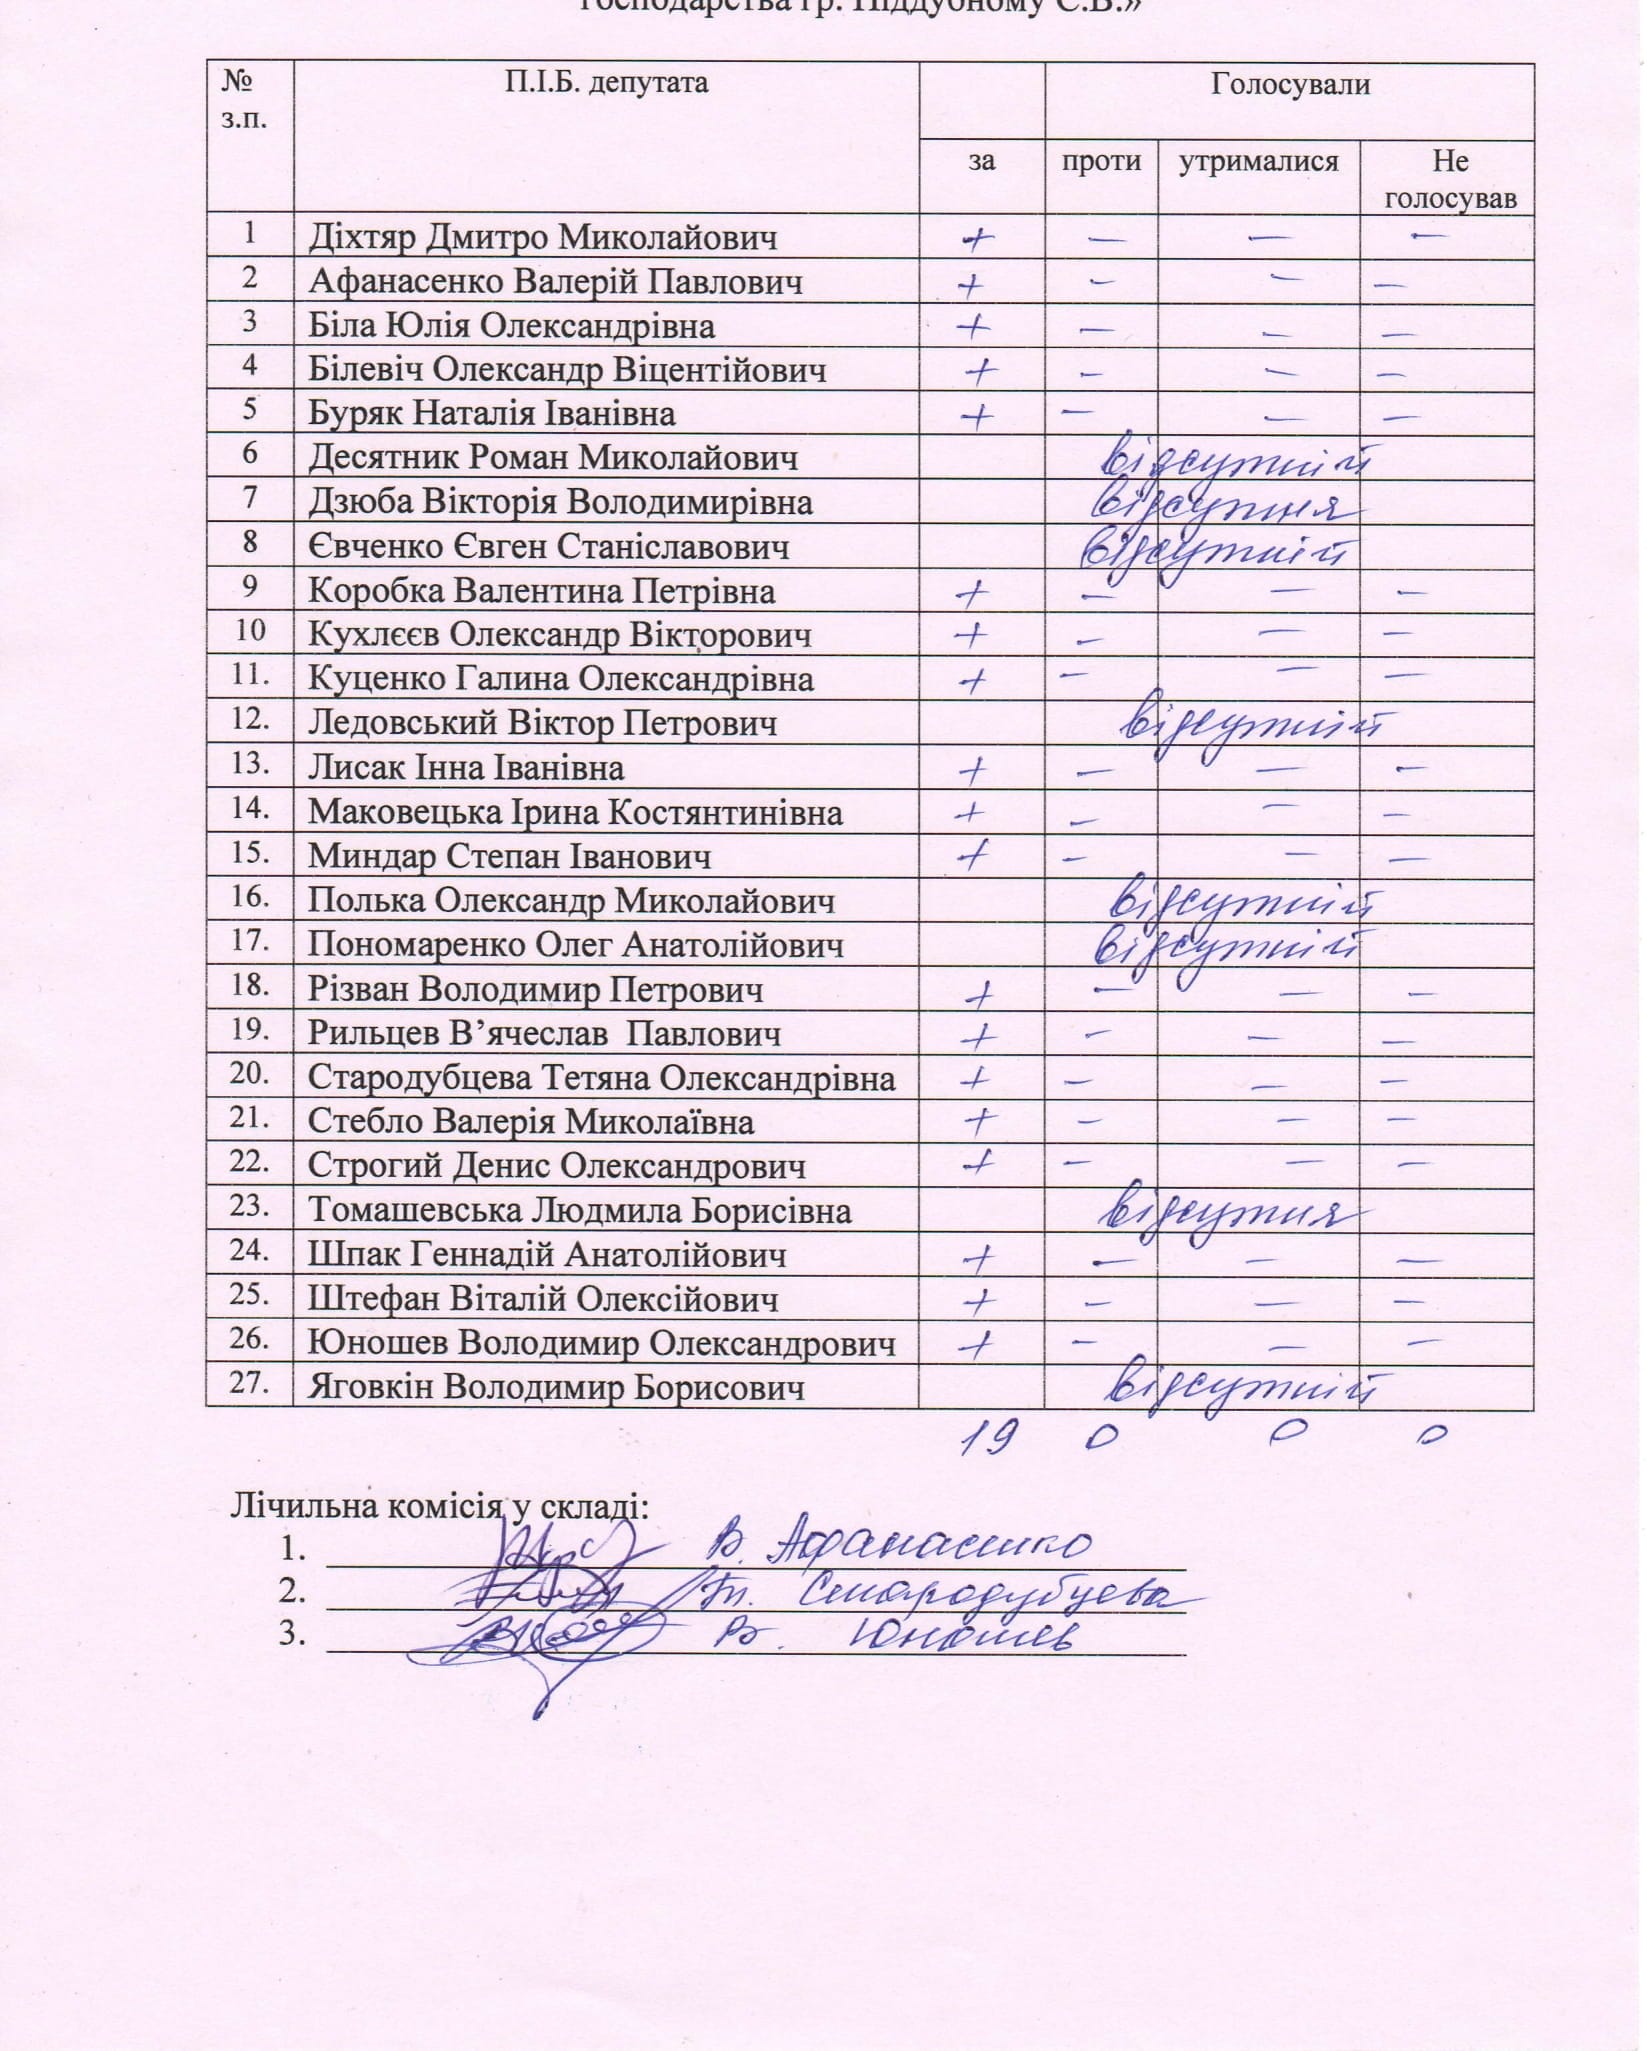 господарства гр. Піддубному С.В.»
№ з.п. П.І.Б. депутата Голосували
за проти утрималися Не голосував
1 Діхтяр Дмитро Миколайович + – – –
2 Афанасенко Валерій Павлович + – – –
3 Біла Юлія Олександрівна + – – –
4 Білевіч Олександр Віцентійович + – – –
5 Буряк Наталія Іванівна + – – –
6 Десятник Роман Миколайович відсутній
7 Дзюба Вікторія Володимирівна відсутня
8 Євченко Євген Станіславович відсутній
9 Коробка Валентина Петрівна + – – –
10 Кухлєєв Олександр Вікторович + – – –
11. Куценко Галина Олександрівна + – – –
12. Ледовський Віктор Петрович відсутній
13. Лисак Інна Іванівна + – – –
14. Маковецька Ірина Костянтинівна + – – –
15. Миндар Степан Іванович + – – –
16. Полька Олександр Миколайович відсутній
17. Пономаренко Олег Анатолійович відсутній
18. Різван Володимир Петрович + – – –
19. Рильцев В’ячеслав Павлович + – – –
20. Стародубцева Тетяна Олександрівна + – – –
21. Стебло Валерія Миколаївна + – – –
22. Строгий Денис Олександрович + – – –
23. Томашевська Людмила Борисівна відсутня
24. Шпак Геннадій Анатолійович + – – –
25. Штефан Віталій Олексійович + – – –
26. Юношев Володимир Олександрович + – – –
27. Яговкін Володимир Борисович відсутній
19 0 0 0
Лічильна комісія у складі:
1. В. Афанасенко
2. Т. Стародубцева
3. В. Юношев